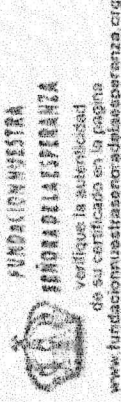 FUNDACION NUESTRA
SEÑORA DE LA ESPERANZA
verifique la autenticidad
de su certificado en la pagina
www.fundacionnuestrasenoradelaesperanza.org